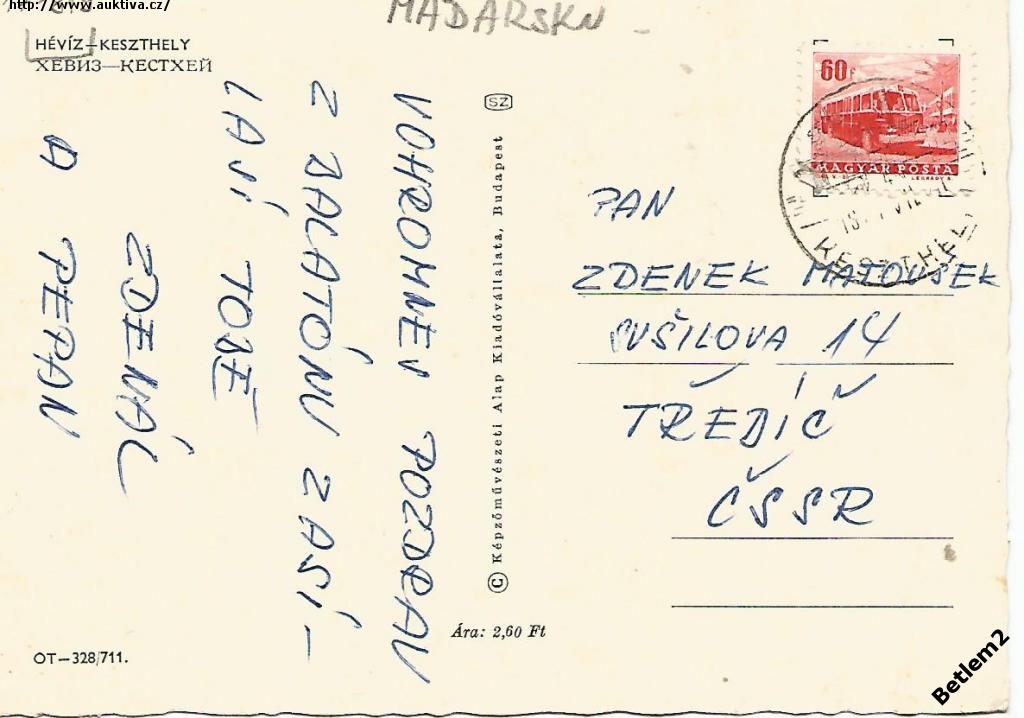 http://www.auktiva.cz/
MAĎARSKO
HÉVÍZ—KESZTHELY
ХЕВИЗ—КЕСТХЕЙ
VOHROMNEJ POZDRAV
Z BALATÓNU ZASÍ-
LAJÍ TOBE
ZDENÁL
A PEPAN
SZ
© Képzőművészeti Alap Kiadóvállalata, Budapest
Ára: 2,60 Ft
OT—328/711.
60f
MAGYAR POSTA
LÉGRÁDY S.
KESZTHELY
PAN
ZDENEK MATOUŠEK
SUŠILOVA 14
TŘEBÍČ
ČSSR
Betlem2